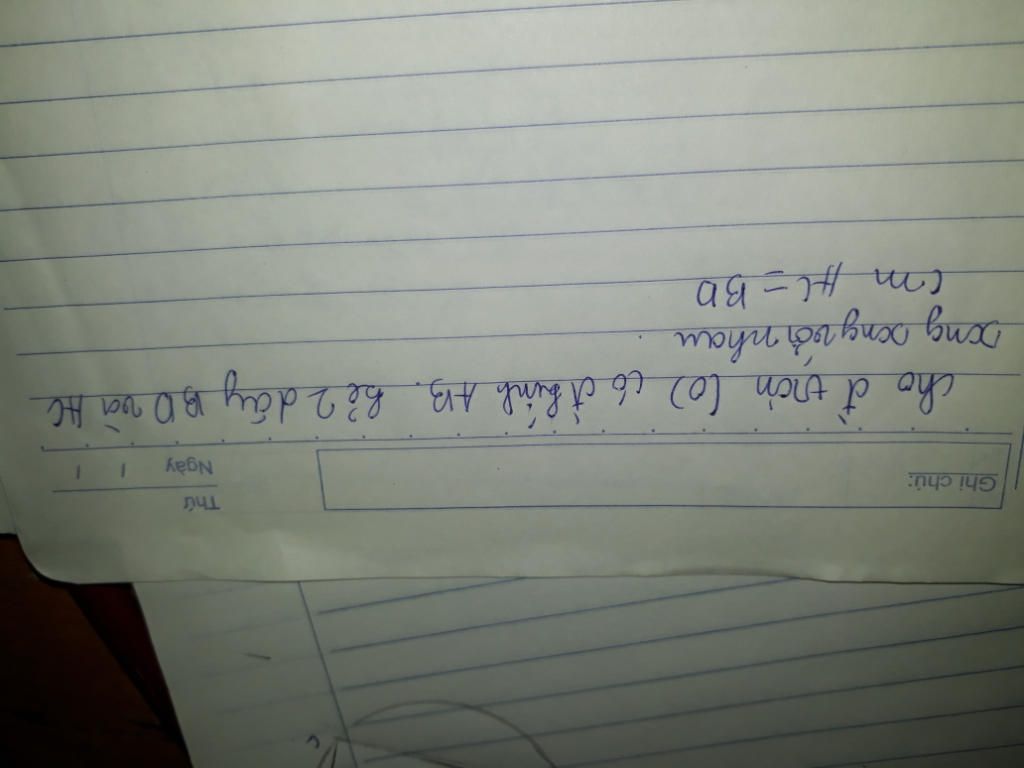 Thứ
Ngày / /
Ghi chú:
cho đ tròn (O) có đ kính AB. Kẻ 2 dây BD và AC
song song với nhau.
Cm AC = BD
c